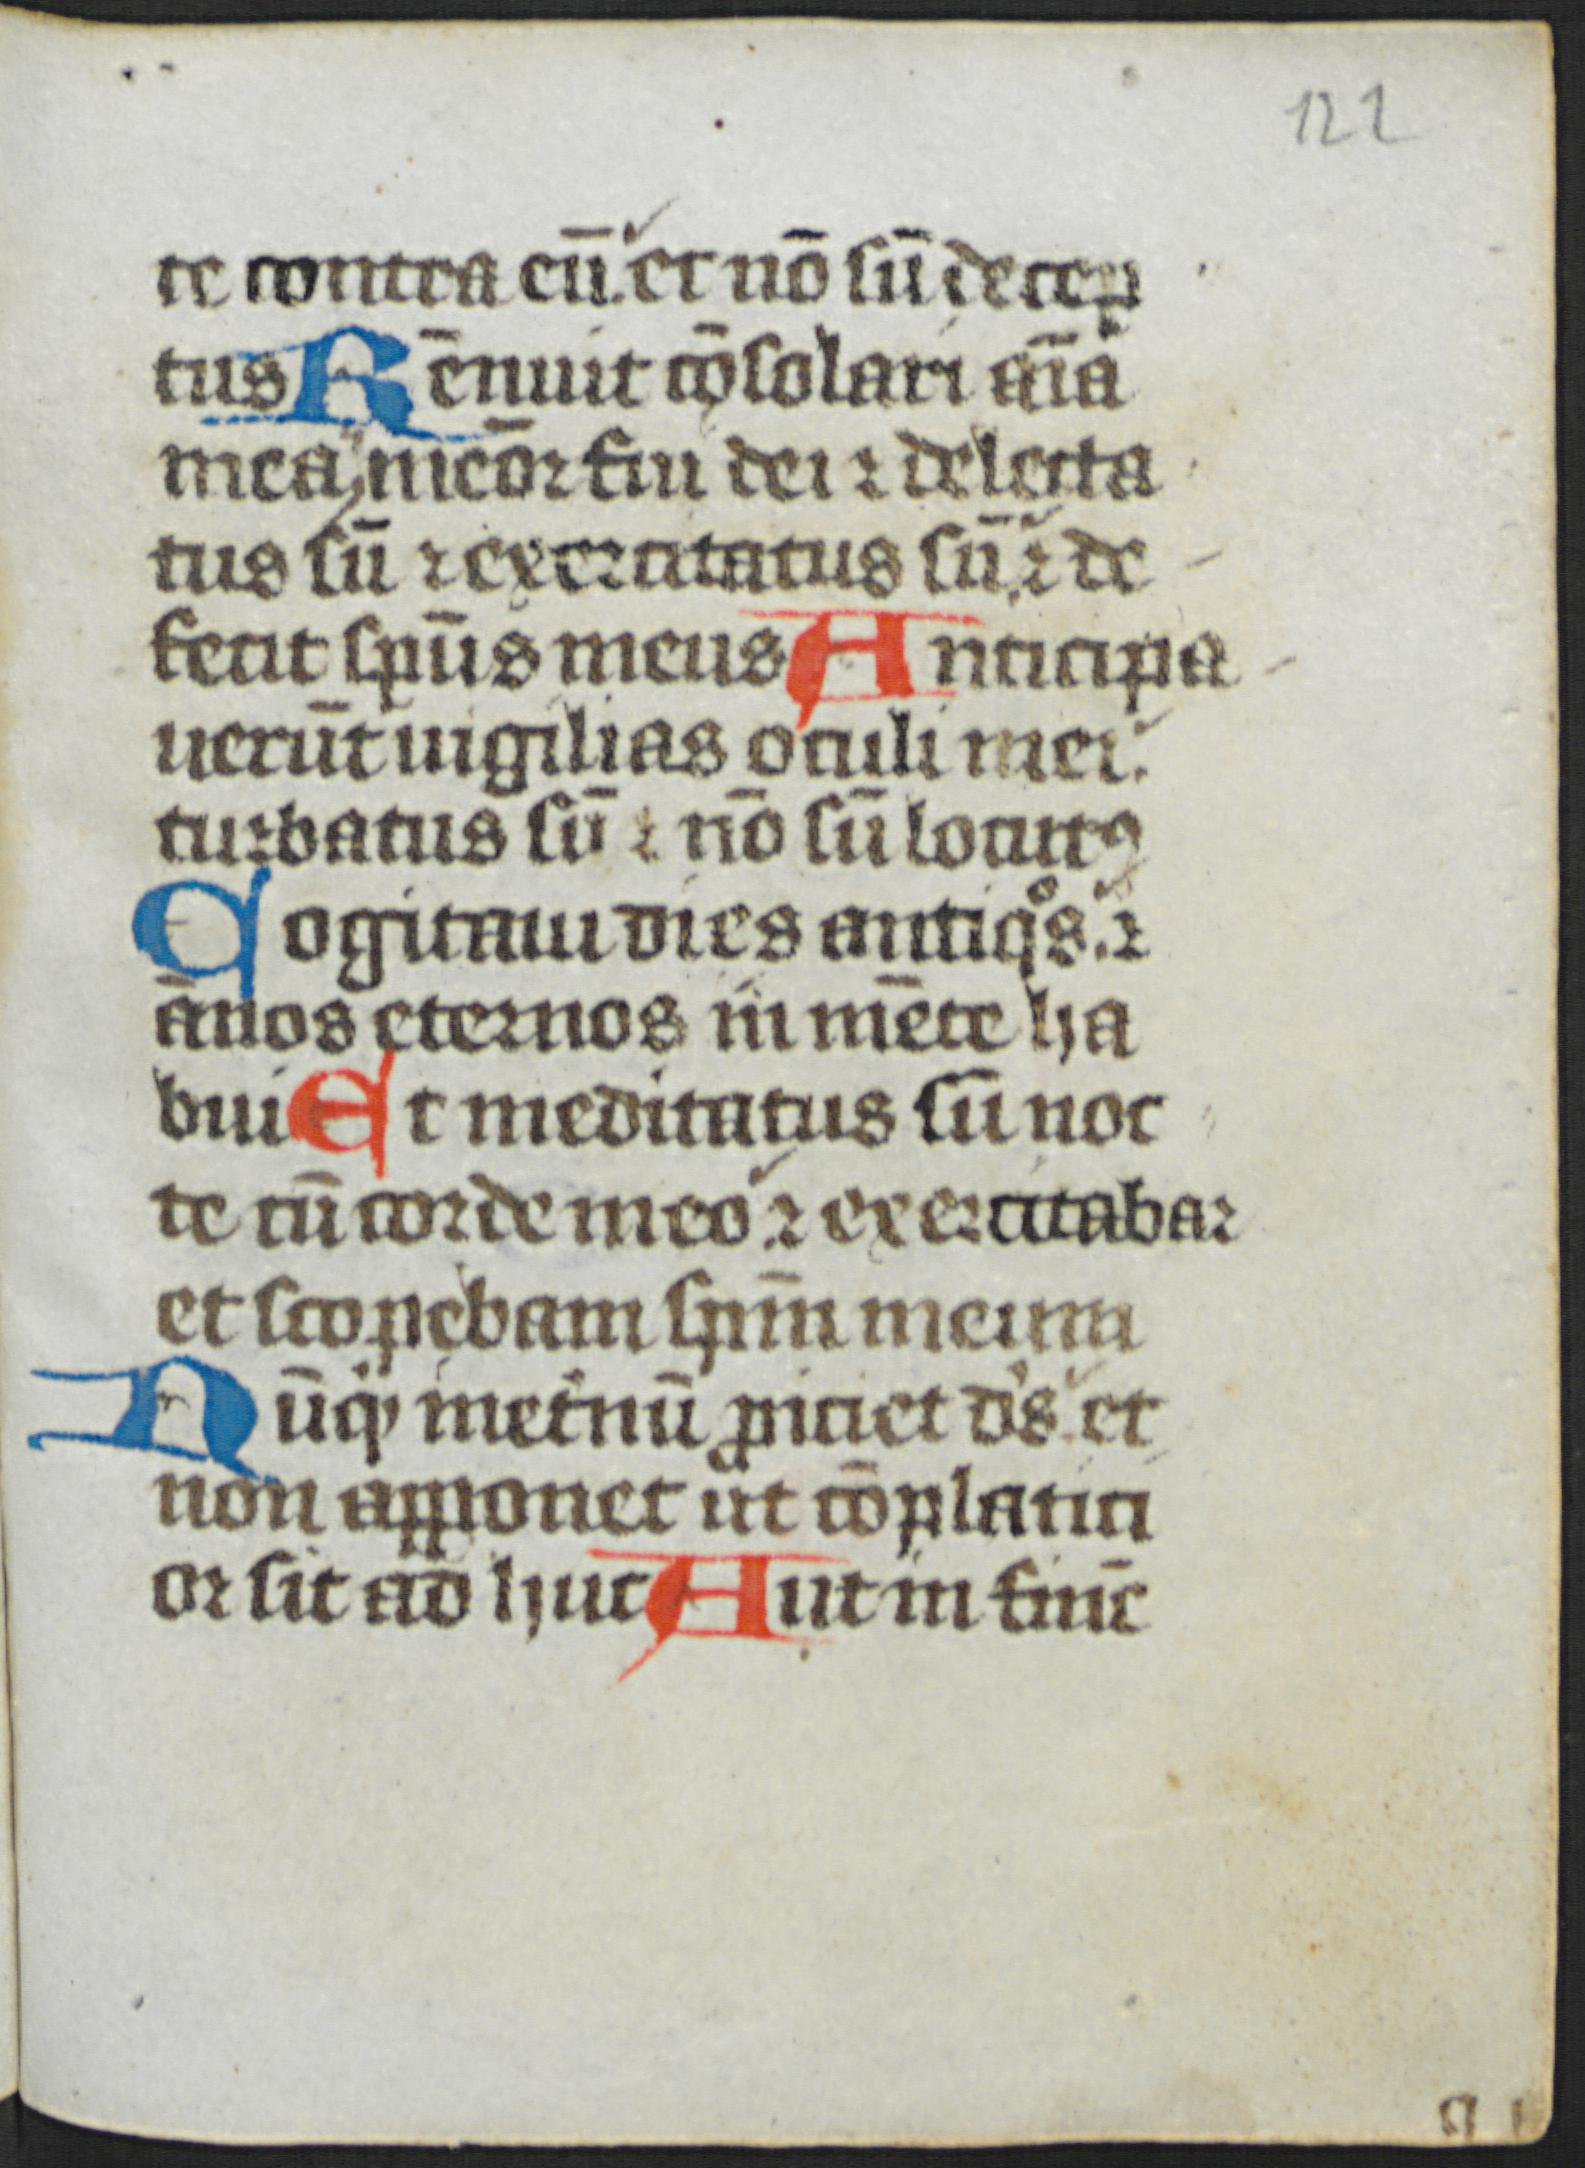 122
te contra eū. et nō sū decep
tus Rēnuit cōsolari aīa
mea, meōr fui dei ⁊ delecta
tus sū ⁊ exercitatus sū. ⁊ de
fecit spūs meus Anticipa
uerūt uigilias oculi mei.
turbatus sū ⁊ nō sū locutꝰ
Cogitaui dies antiqͦs. ⁊
ānos eternos in mēte ha
bui Et meditatus sū noc
te cū corde meo. ⁊ exercitabar
et scopebam spm̄ meum
Nūqͥ ī et̄nū ꝓiciet ds̄. et
non apponet ut cōplaciti
or sit ad huc Aut in finē